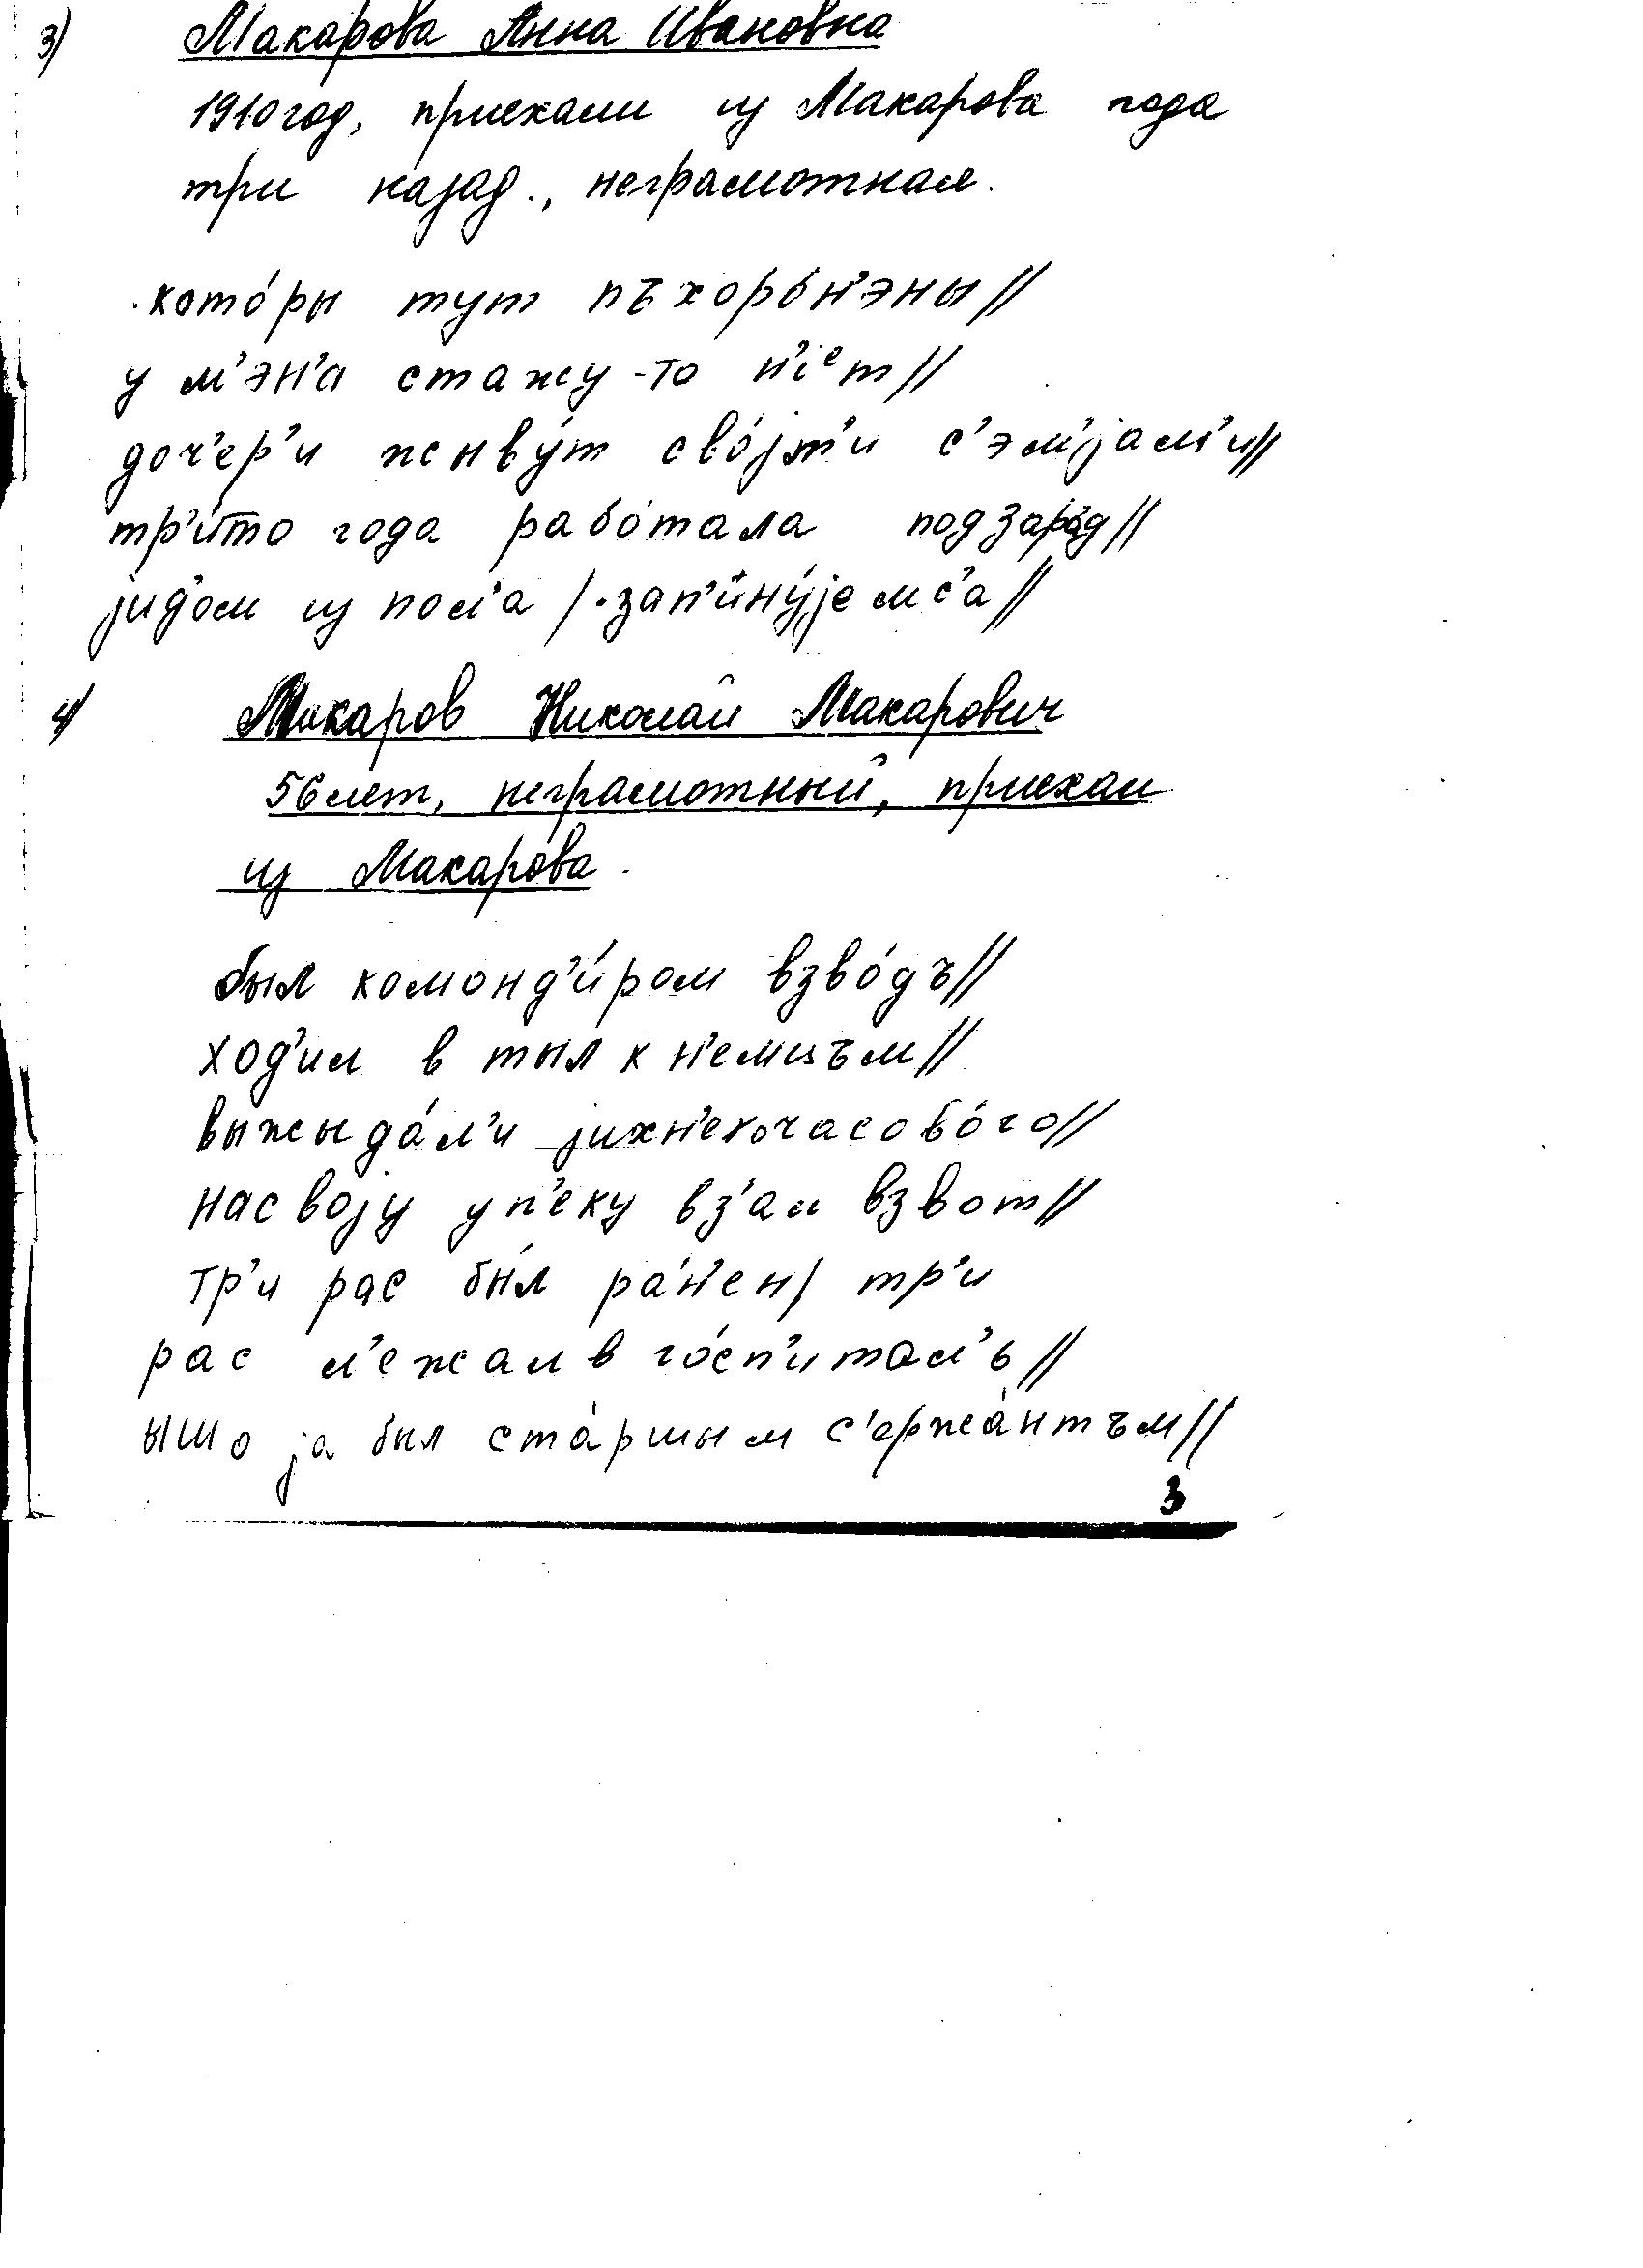 3) Макарова Анна Ивановна
1910 год, приехали из Макарова года
три назад., неграмотная.
кото́ры тут пъхоро́н'эны//
у м'эн'а стажу-то н'іᵉт//
доч'ер'и жывýт сво́jm'и с'эм'jам'и//
тр'и́то года рабо́тала подзаря́д//
jид'ом из пол'а /·зап'инýjемс'а//
4) Макаров Николай Макарович
56 лет, неграмотный, приехал
из Макарова.
был команд'и́ром взво́дъ//
ход'ил в тыл к н'емцъм//
выжыда́л'и jихн'ехочасово́го//
насвоjу уп'еку вз'ал взвот//
тр'и рас был ра́н'ен/ тр'и
рас л'ежал в го́сп'итал'ь//
ышо jа был ста́ршым с'ержа́нтъм//
3